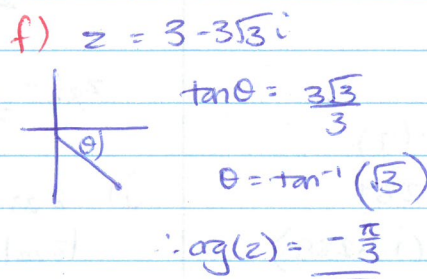 f) z = 3 - 3√3 i
tanθ = 3√3/3
θ
θ = tan⁻¹(√3)
∴ arg(z) = -π/3